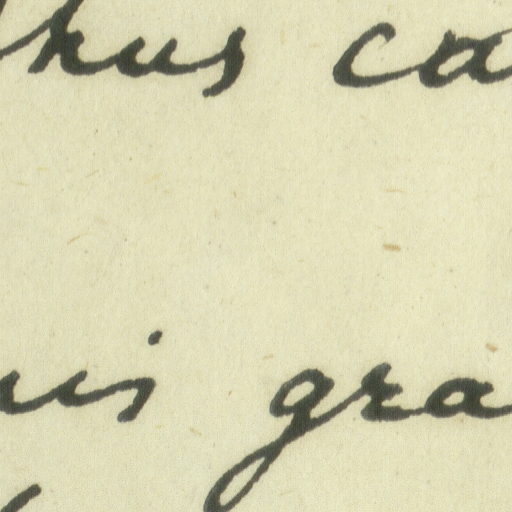 thus ca
uis gra